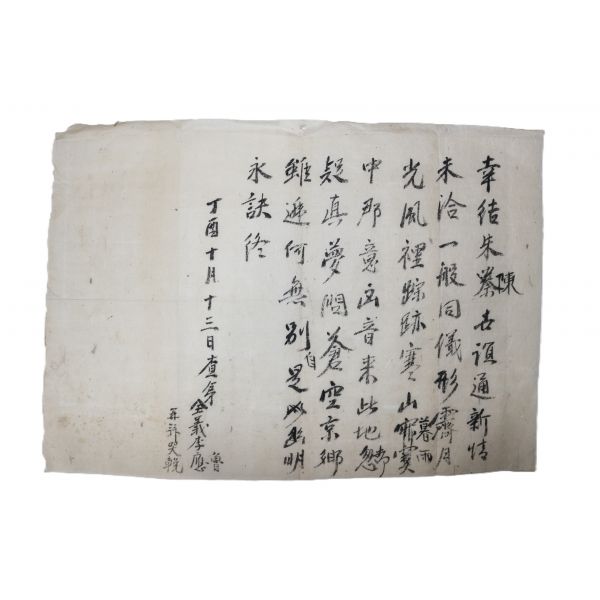 幸結朱蓁陳古誼通新情
未洽一般同儀形霽月
光風裡踪跡寒山暮雨
中那意凶音来此地忽却
疑真夢悶蒼空京鄉
雖何無別自是幽明
永訣終
丁酉十月十三日査弟全義李應魯
再拜哭輓